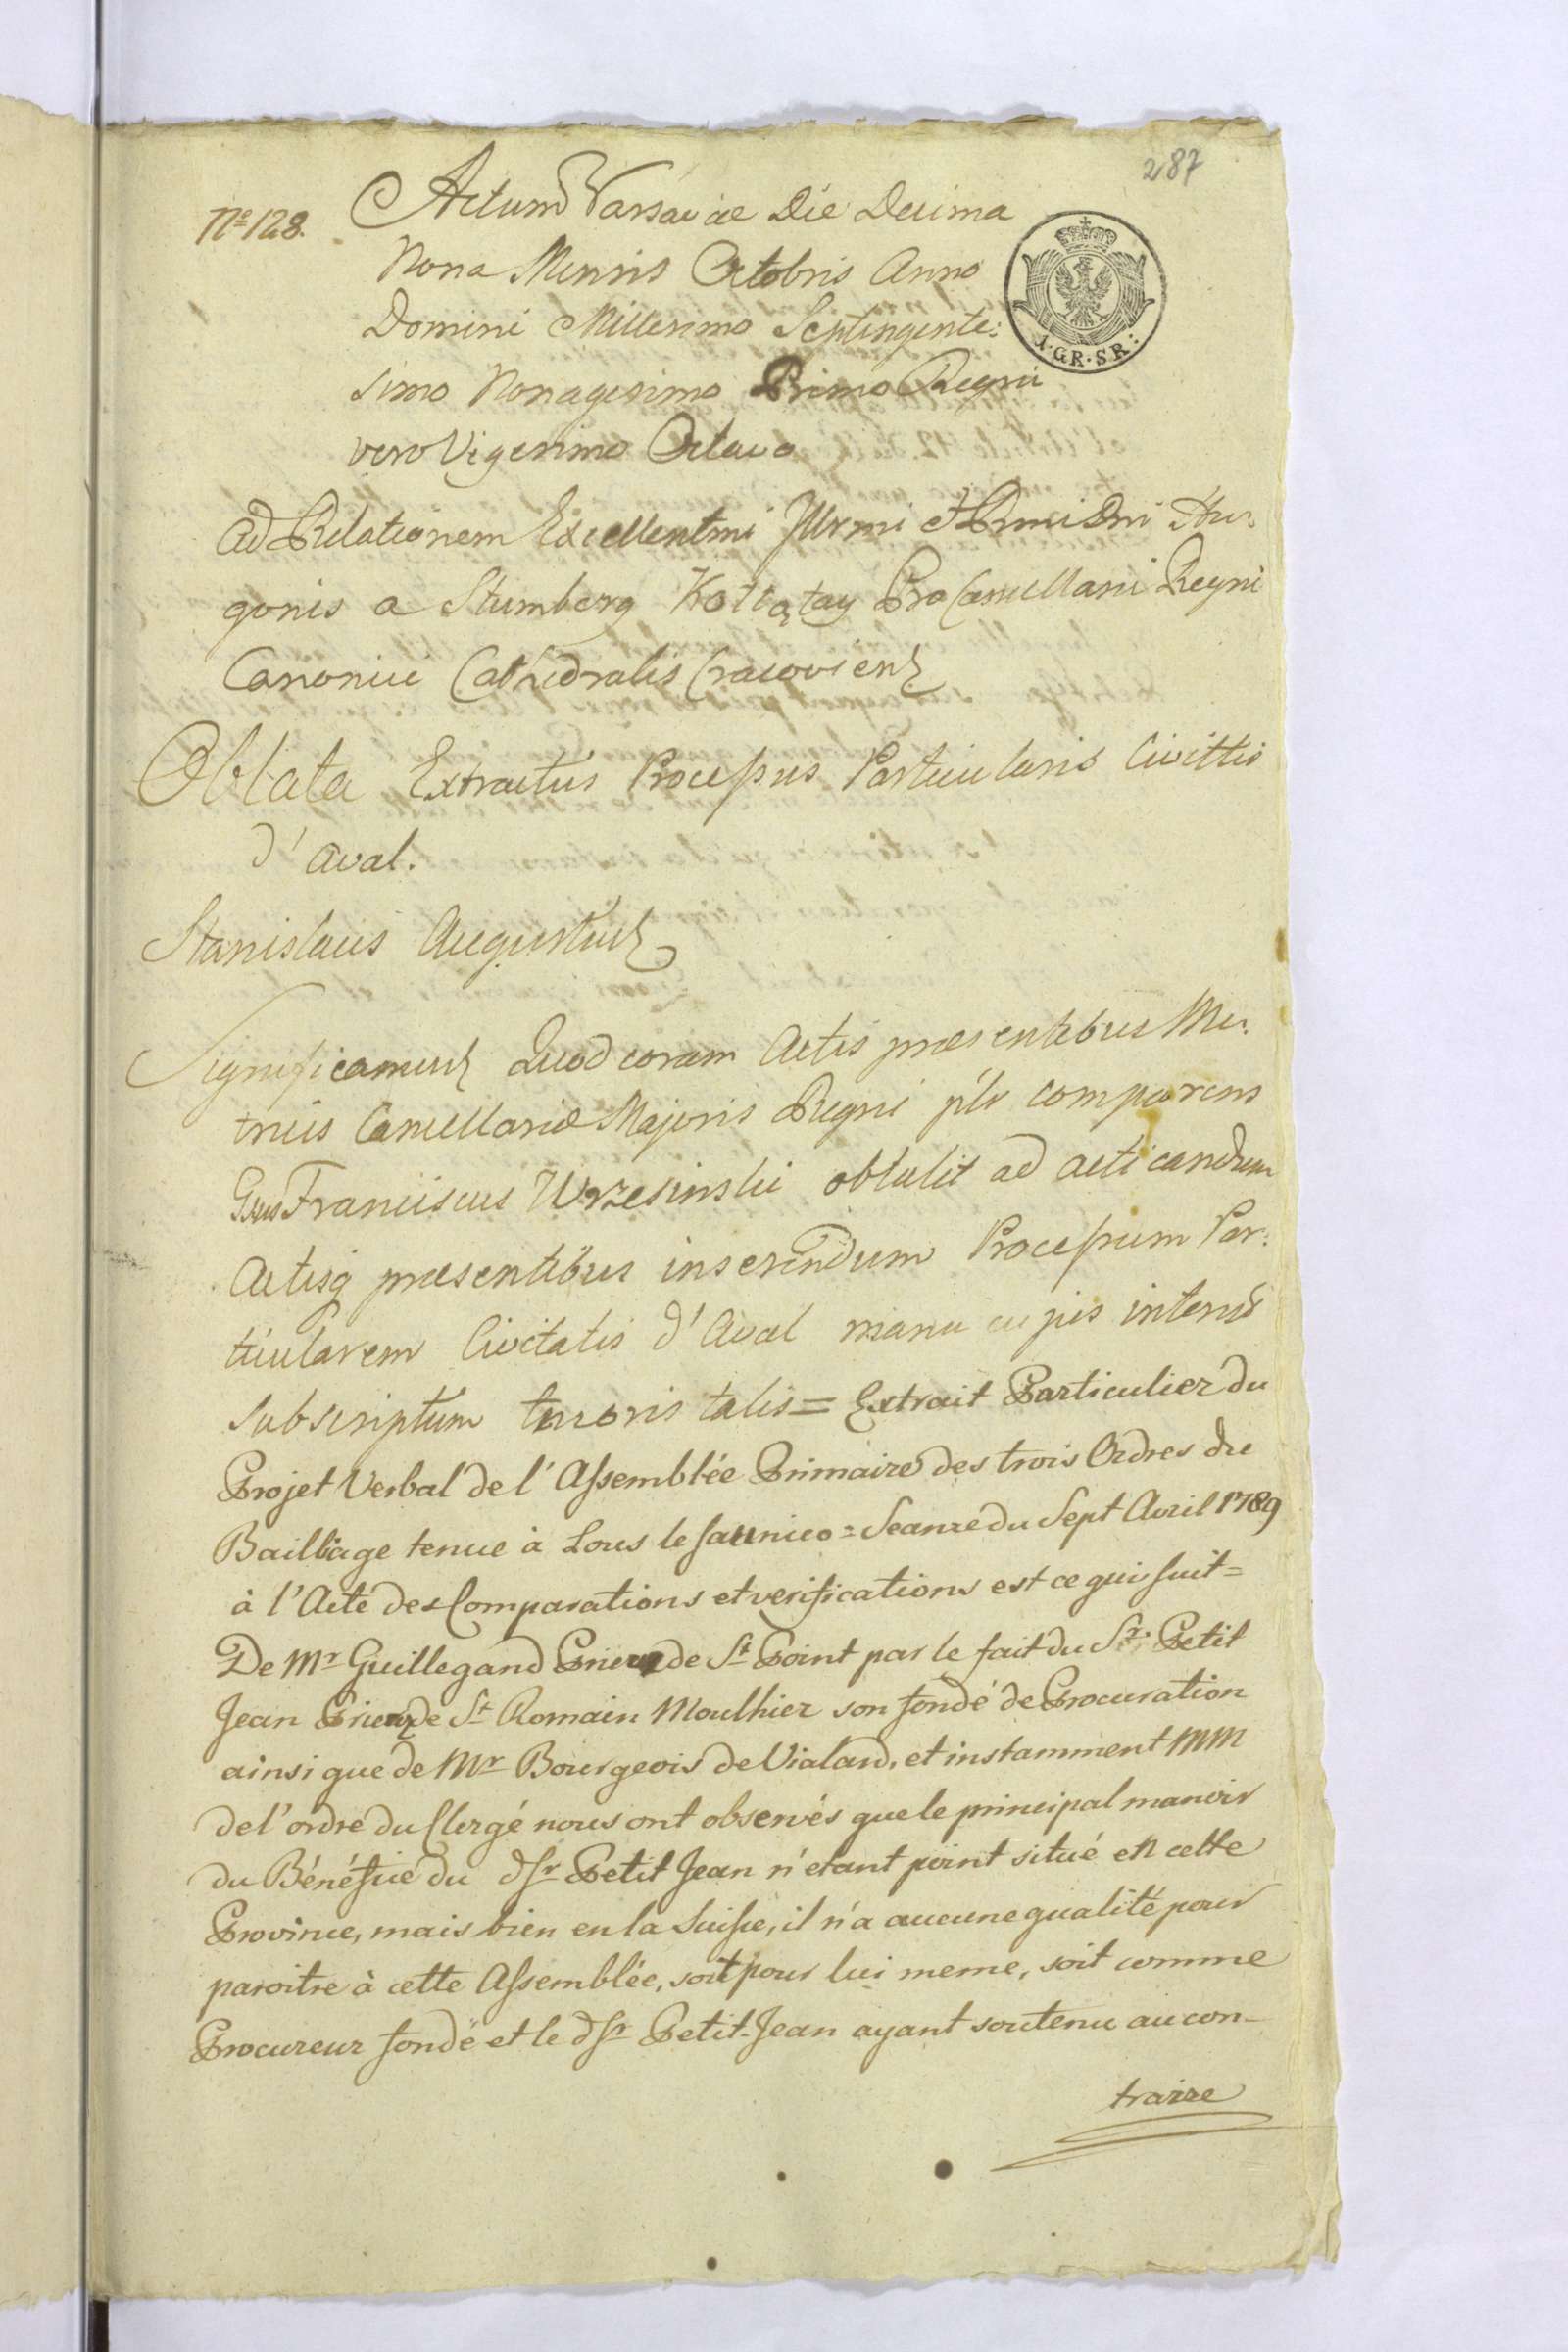 287
No 128.
Actum Varsaviae Die Decima
Nona Mensis Octobris Anno
Domini Millesimo Septingente:
simo Nonagesimo Primo Regni
vero Vigesimo Octavo
X·GR·SR:
Ad Relationem Excellentmi Jllrmi Dni Hu:
gonis a Stumberg Kołłątay Pro Cancellarii Regni
Canonici Cathedralis Cracovien
Oblata Extractus Processus Particularis Civittis
d'Aval.
Stanislaus Augustus
Significamus Quod coram Actis praesentibus Me:
trices Cancellariae Majoris Regni plr comparens
Gnus Franciscus Wrzesinski obtulit ad acticandum
Actisq praesentibus inserendum Processum Par:
ticularem Civitatis d'Aval manu cujus
subscriptum tenoris talis = Extrait Particulier du
Projet Verbal de l'Assemblée Primaire des trois Ordres du
Bailliage tenue à Lous le Saunieo = Seance du Sept Avril 1789
à l'Acte des Comparations et verifications est ce qui suit =
De Mr Guillegand Prieur de St Point par le fait du Sr. Petit
Jean Prieur de St Romain Moulhier son fondé de Procuration
ainsi que de Mr Bourgeois de Vialard, et instamment MM
de l'ordre du Clergé nous ont observés que le principal manoir
du Bénéfice du dSr Petit Jean n'etant point situé en cette
Province, mais bien en la Suisse, il n'a aucune qualité pour
paroitre à cette Assemblée, soit pour lui meme, soit comme
Procureur fondé et le dSr Petit-Jean ayant soutenu au con-
traire